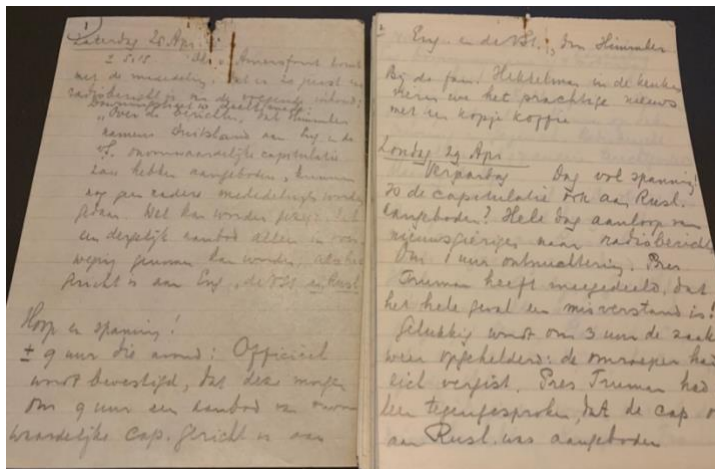 1
Zaterdag 28 Apr.
± 5.15 Amersfoort komt
met de mededeling, dat er zo juist een
radiobericht is van de volgende inhoud:
Downingstreet is
"Over de berichten, dat Himmler
namens Duitsland aan Eng. en de
V.S. onvoorwaardelijke capitulatie
zou hebben aangeboden, kunnen
nog geen nadere mededelingen worden
gedaan. Wel kan worden gezegd, dat
een dergelijk aanbod alleen in over
weging genomen kan worden, als het
gericht is aan Eng., de V.St. en Rusl.
Hoop en spanning!
± 9 uur die avond: Officieel
wordt bevestigd, dat deze morgen
om 9 uur een aanbod van onvoor
waardelijke cap. gericht is aan
2
Eng. en de V.St., door Himmler
Bij de fam. Hekkelman in de keuken
vieren we het prachtige nieuws
met een kopje koffie
Zondag 29 Apr
Verjaardag Dag vol spanning!
Is de capitulatie ook aan Rusl.
aangeboden? Hele dag aanloop van
nieuwsgierigen naar radioberichten
Om 1 uur ontnuchtering. Pres
Truman heeft meegedeeld, dat
het hele geval een misverstand is!
Gelukkig wordt om 3 uur de zaak
weer opgehelderd: de omroeper had
zich vergist. Pres Truman had
tegengesproken, dat de cap.
aan Rusl. was aangeboden